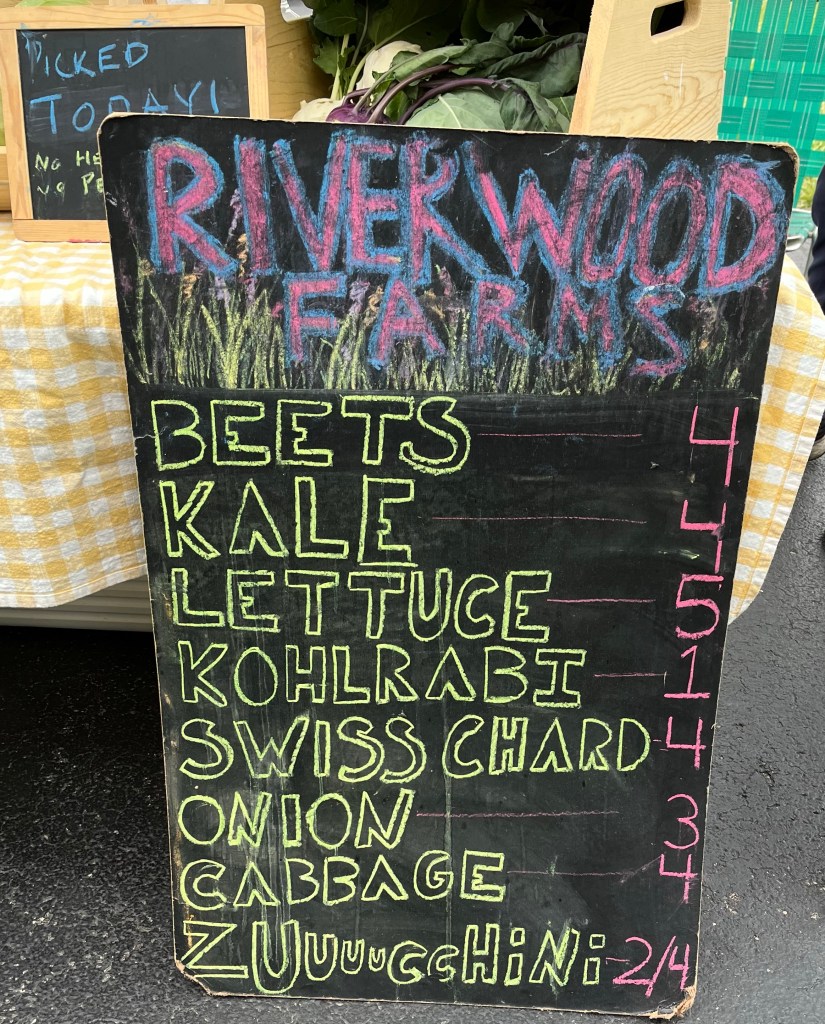 PICKED
TODAY!
NO
NO
RIVERWOOD
FARMS
BEETS 4
KALE 4
LETTUCE 5
KOHLRABI 1
SWISS CHARD 4
ONION 3
CABBAGE 4
ZUuuuuCCHiNi 2/4